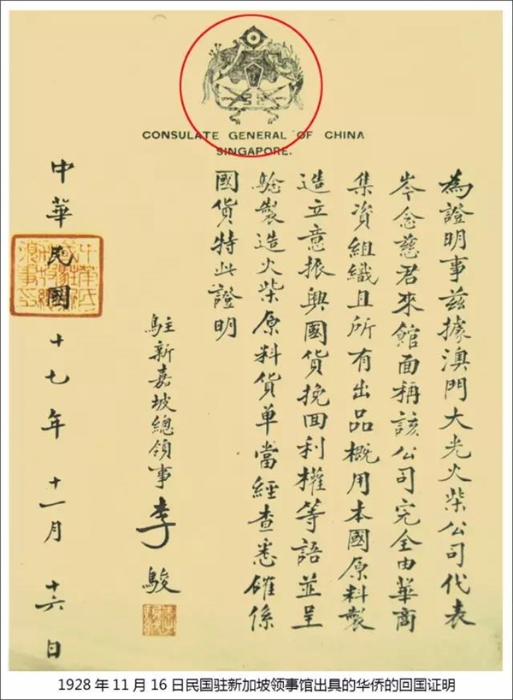 CONSULATE GENERAL OF CHINA
SINGAPORE.
為證明事茲據澳門大光火柴公司代表
岑念慈君來館面稱該公司完全由華商
集資組織且所有出品概用本國原料製
造立意振興國貨挽回利權等語並呈
驗製造火柴原料貨單當經查悉確係
國貨特此證明
駐新嘉坡總領事李駿
中華民國十七年十一月十六日
1928 年 11 月 16 日民国驻新加坡领事馆出具的华侨的回国证明